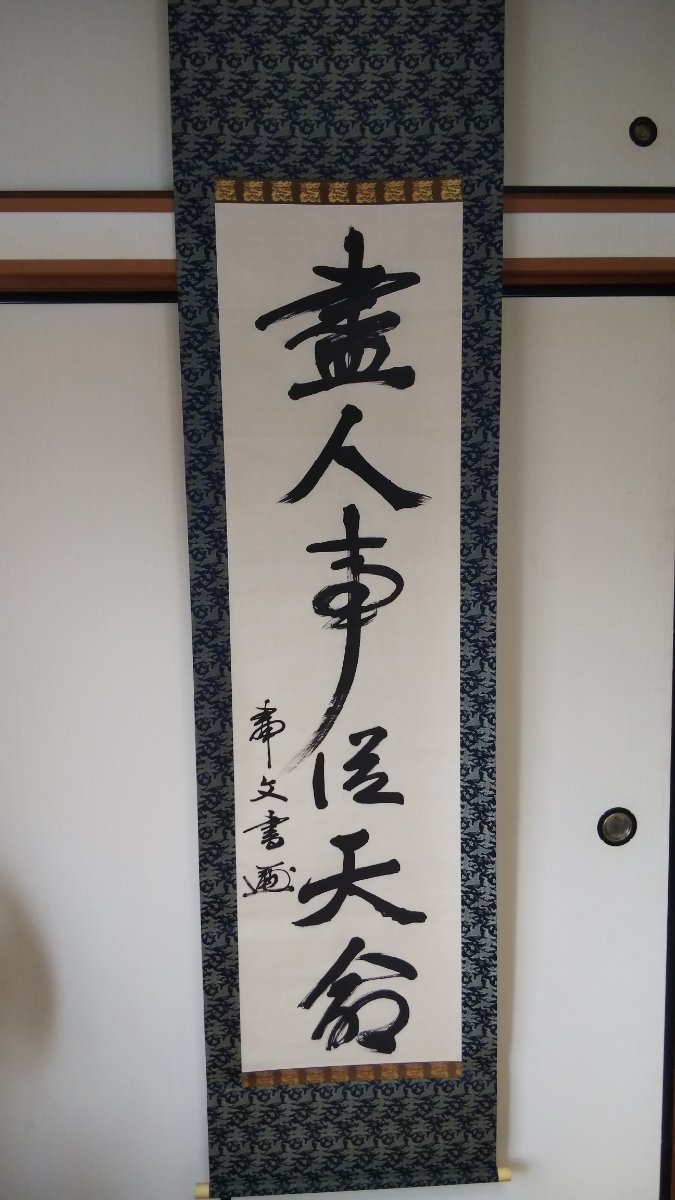 盡人事従天命
文書